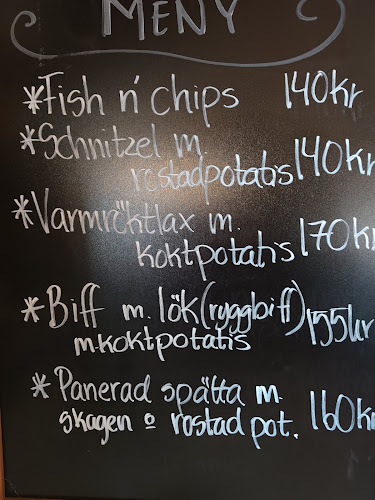 MENY
*Fish n' chips 140kr
*Schnitzel m.
rostadpotatis 140kr
*Varmröktlax m.
koktpotatis 170kr
*Biff m. lök (ryggbiff) 155kr
m.koktpotatis
*Panerad spätta m.
skagen o rostad pot. 160kr